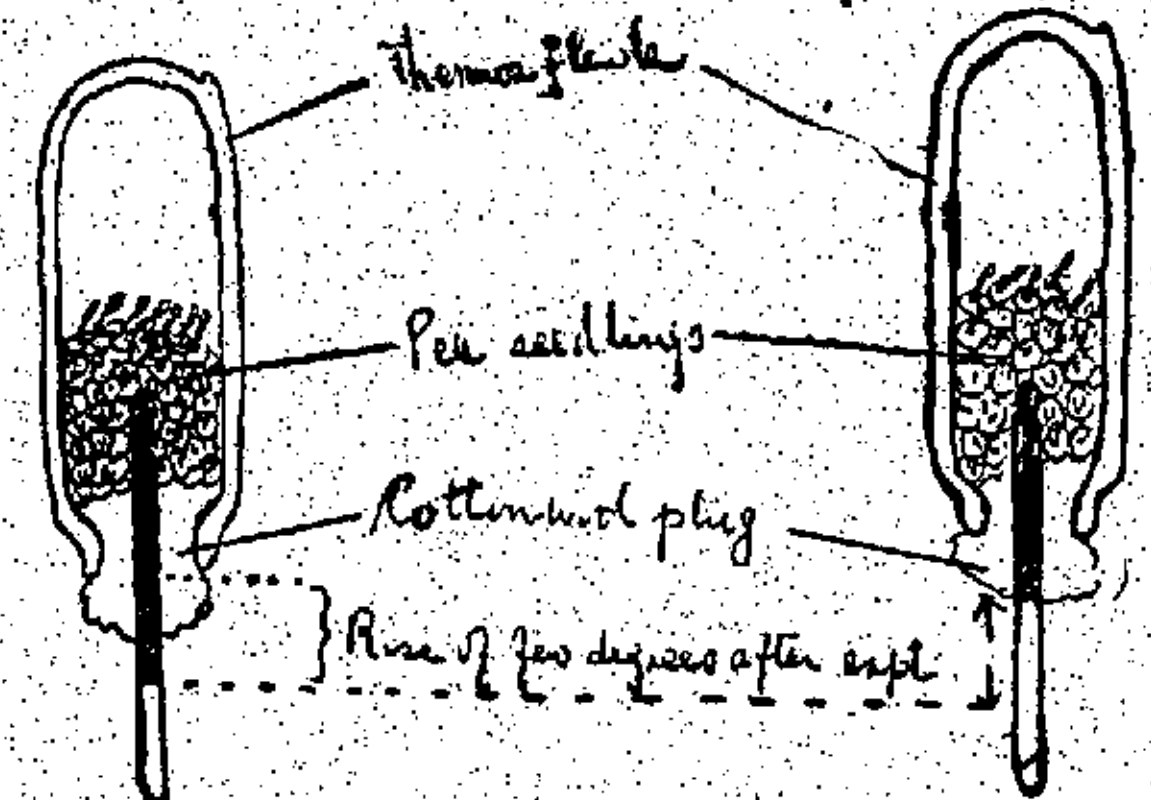 Thermos flasks
Pea seedlings
Cottonwool plug
Rise of few degrees after expt.